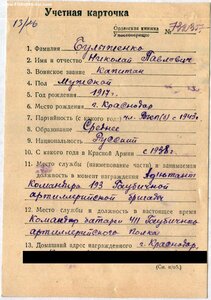 Учетная карточка
13/26
Орденская книжка
Удостоверение №
1. Фамилия Булотенко
2. Имя и отчество Николай Павлович
3. Воинское звание Капитан
4. Пол Мужской
5. Год рождения 1917 г.
6. Место рождения г. Краснодар
7. Партийность (с какого года) чл. ВКП(б) с 1943 г.
8. Образование Среднее
9. Национальность Русский
10. С какого года в Красной Армии с 1938 г.
11. Место службы (наименование части) и занимаемая
должность в момент награждения Адъютант
Командира 193 Гаубичной
артиллерийской бригады
12. Место службы и должность в настоящее время
Командир батареи 411 Гаубичного
артиллерийского полка
13. Домашний адрес награжденного г. Краснодар,
(См. н/об.)